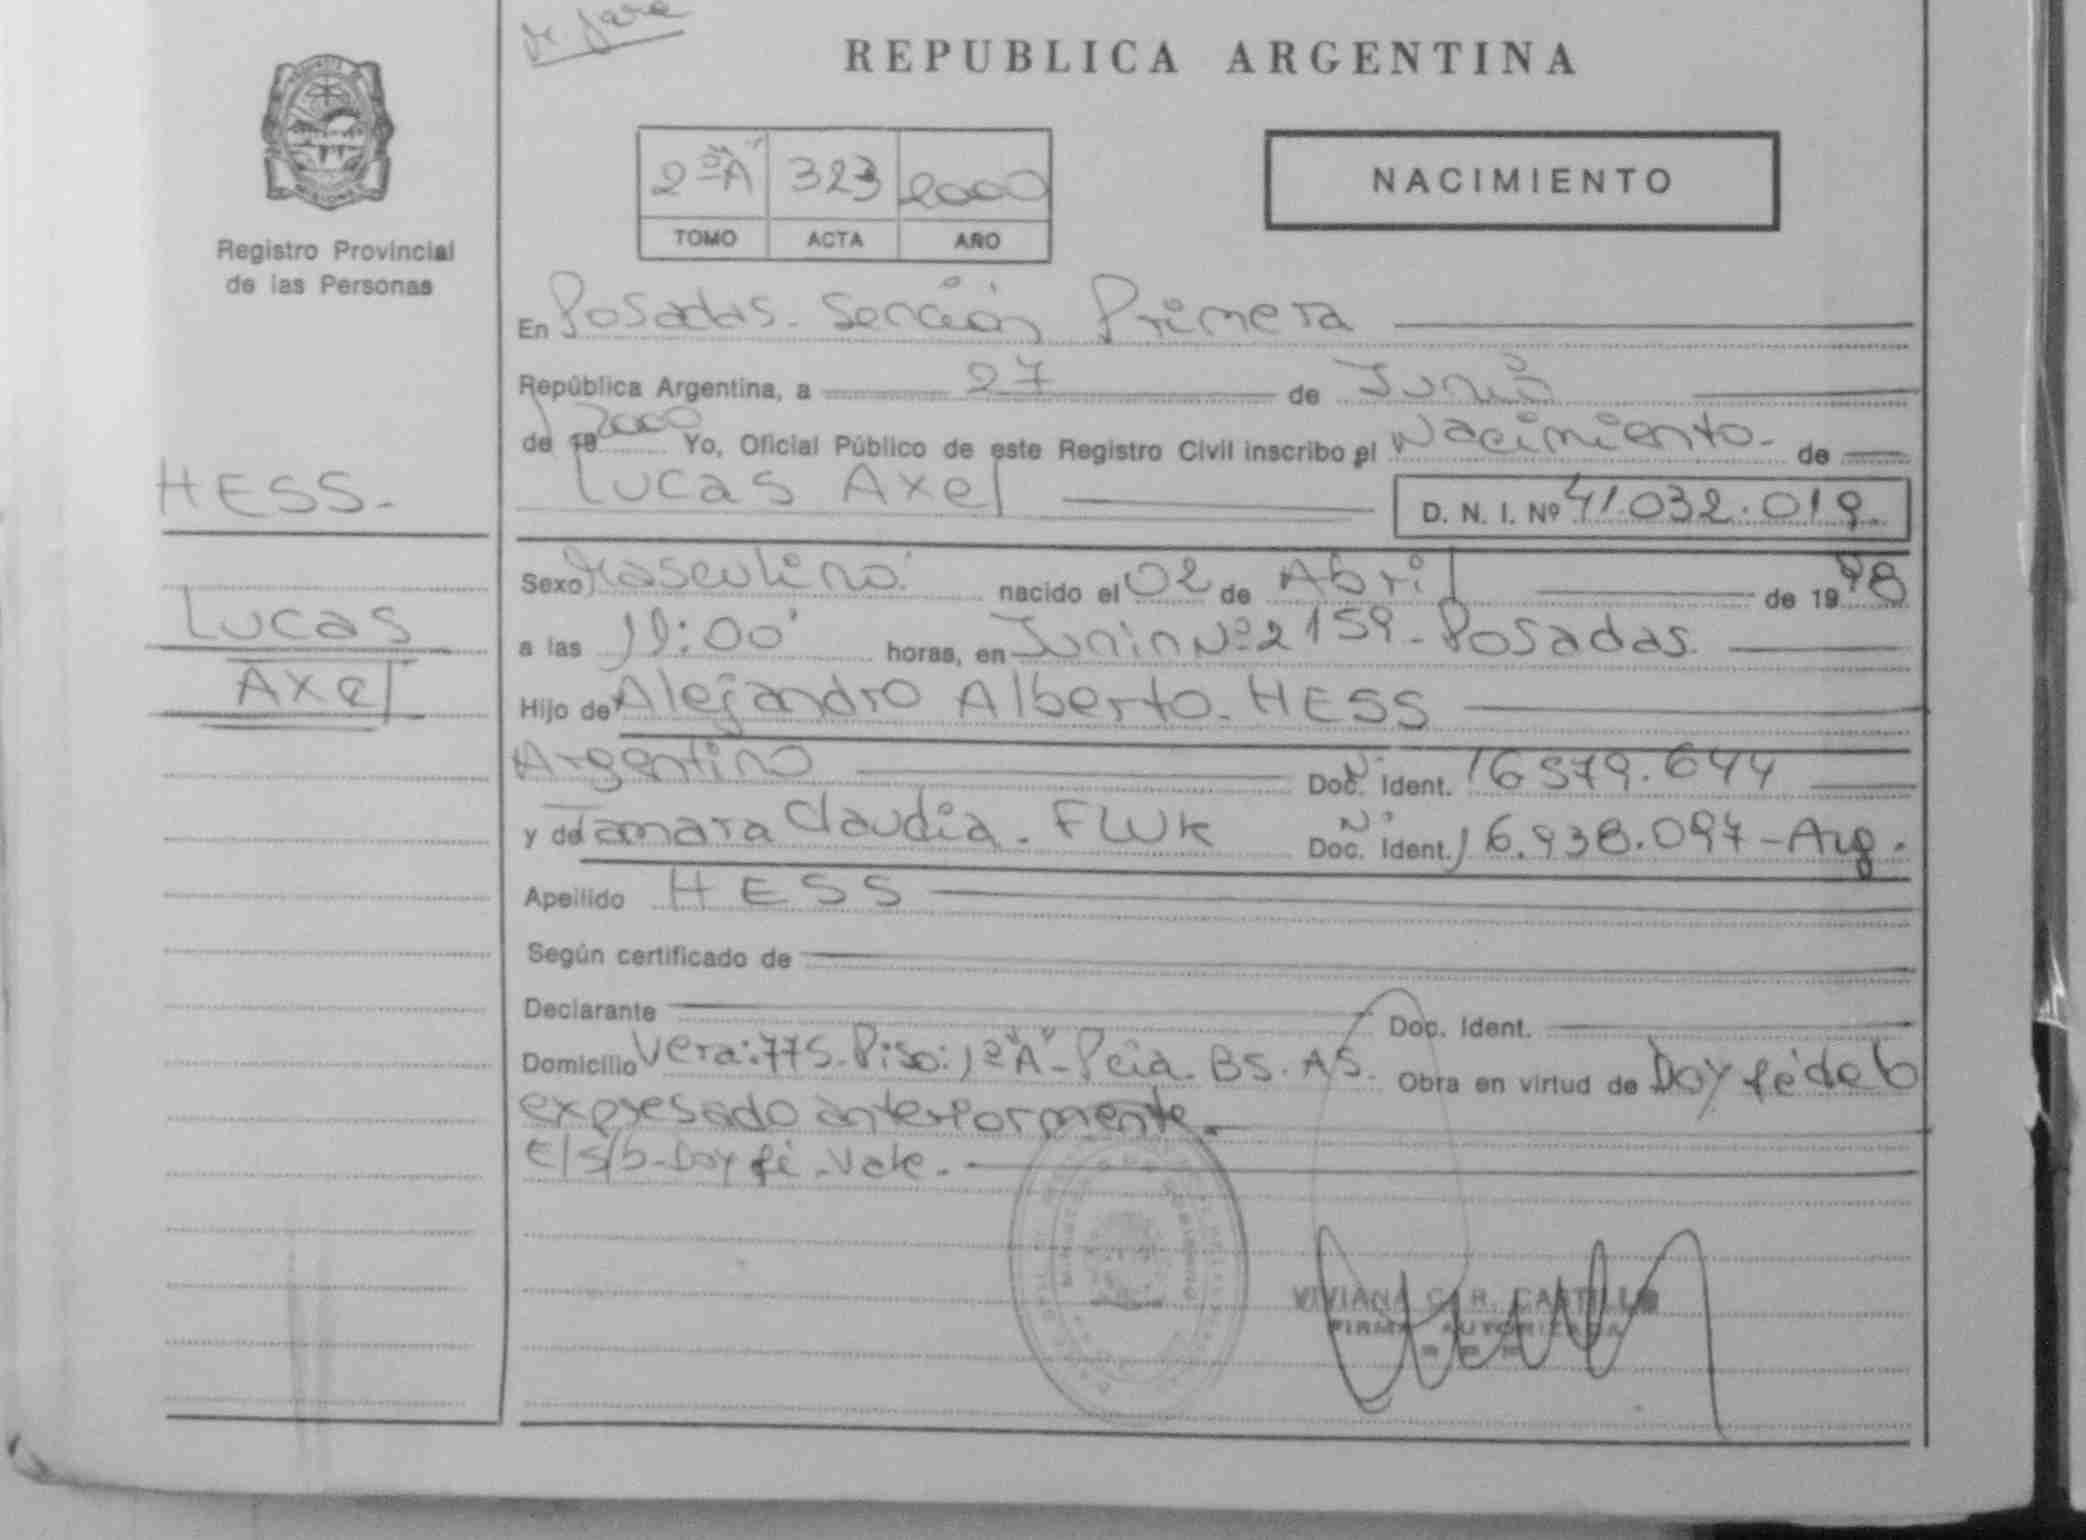 REPUBLICA ARGENTINA
Registro Provincial
de las Personas
2ºº"A" 323 2000
TOMO ACTA AÑO
NACIMIENTO
En Posadas - Sección Primera
República Argentina, a 27 de Junio
de 19 2000 Yo, Oficial Público de este Registro Civil inscribo el Nacimiento - de
Lucas Axel D. N. I. Nº 41.032.019.
HESS.-
Lucas
Axel
Sexo Masculino nacido el 02 de Abril de 19 98
a las 11:00' horas, en Junin Nº 2159 - Posadas
Hijo de Alejandro Alberto - HESS
Argentino Doc. Ident. Nº 16579.644
y de Tamara Claudia - FWK Doc. Ident. Nº 16.938.097 - Arg.
Apellido HESS
Según certificado de
Declarante Doc. Ident.
Domicilio Vera: 775 - Piso: 12"A" - Pcia. BS. AS. Obra en virtud de Doy fé de lo
expresado anteriormente.-
E/S/b - Doy fé - Vale.-
VIVIANA C. R. CASTILLO
FIRMA AUTORIZADA